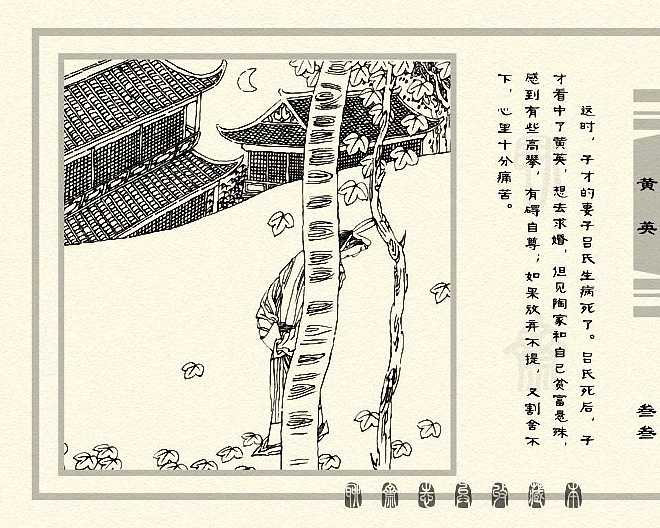 这时，子才的妻子吕氏生病死了。吕氏死后，子
才看中了黄英，想去求婚，但见陶家和自己贫富悬殊，
感到有些高攀，有碍自尊；如果放弃不提，又割舍不
下，心里十分痛苦。
黄英
叁叁
聊斋志异收藏本